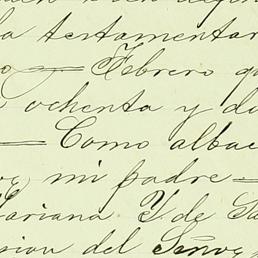 a testamentar
o — Febrero qu
ochenta y do
— Como albac
mi padre —
ariana Y. de Sa
sion del Señor